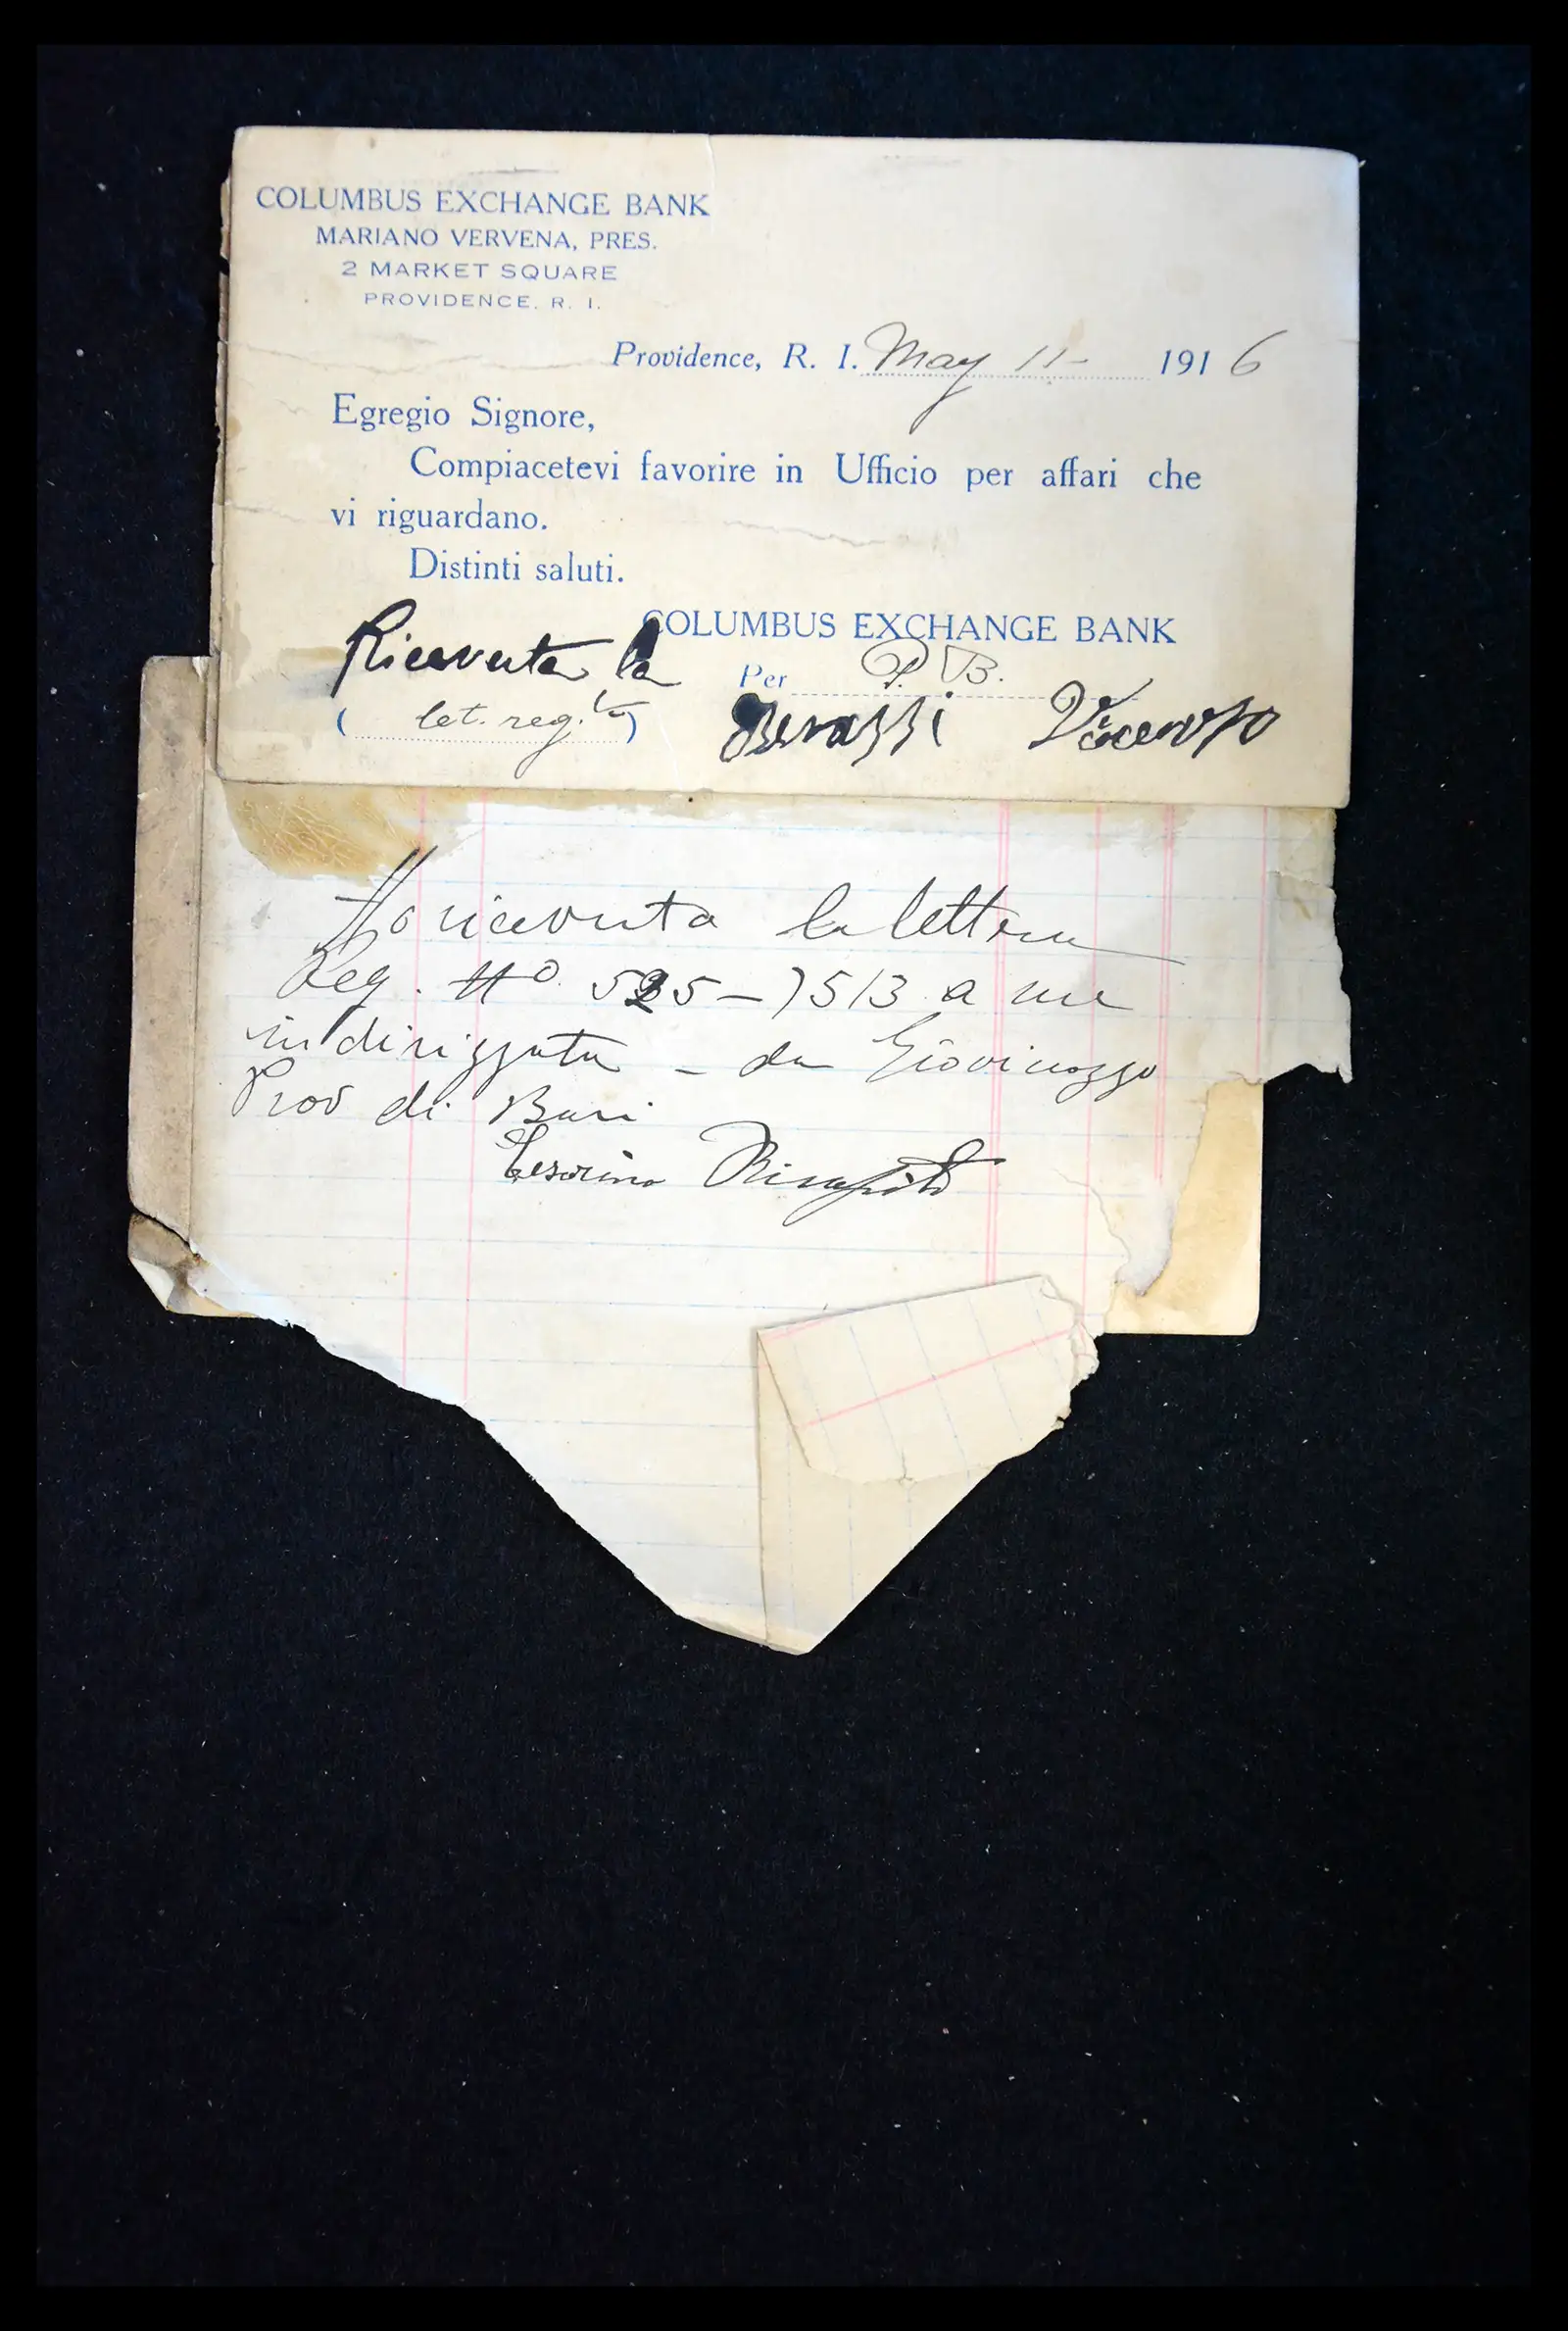 COLUMBUS EXCHANGE BANK
MARIANO VERVENA, PRES.
2 MARKET SQUARE
PROVIDENCE, R. I.
Providence, R. I. May 11- 1916
Egregio Signore,
Compiacetevi favorire in Ufficio per affari che
vi riguardano.
Distinti saluti.
COLUMBUS EXCHANGE BANK
Ricevuta la
Per P. B.
( let. reg.ta )
Ho ricevuta la lettera
Reg. No 525-7513 a me
indirizzata - da Giovinazzo
Prov di Bari